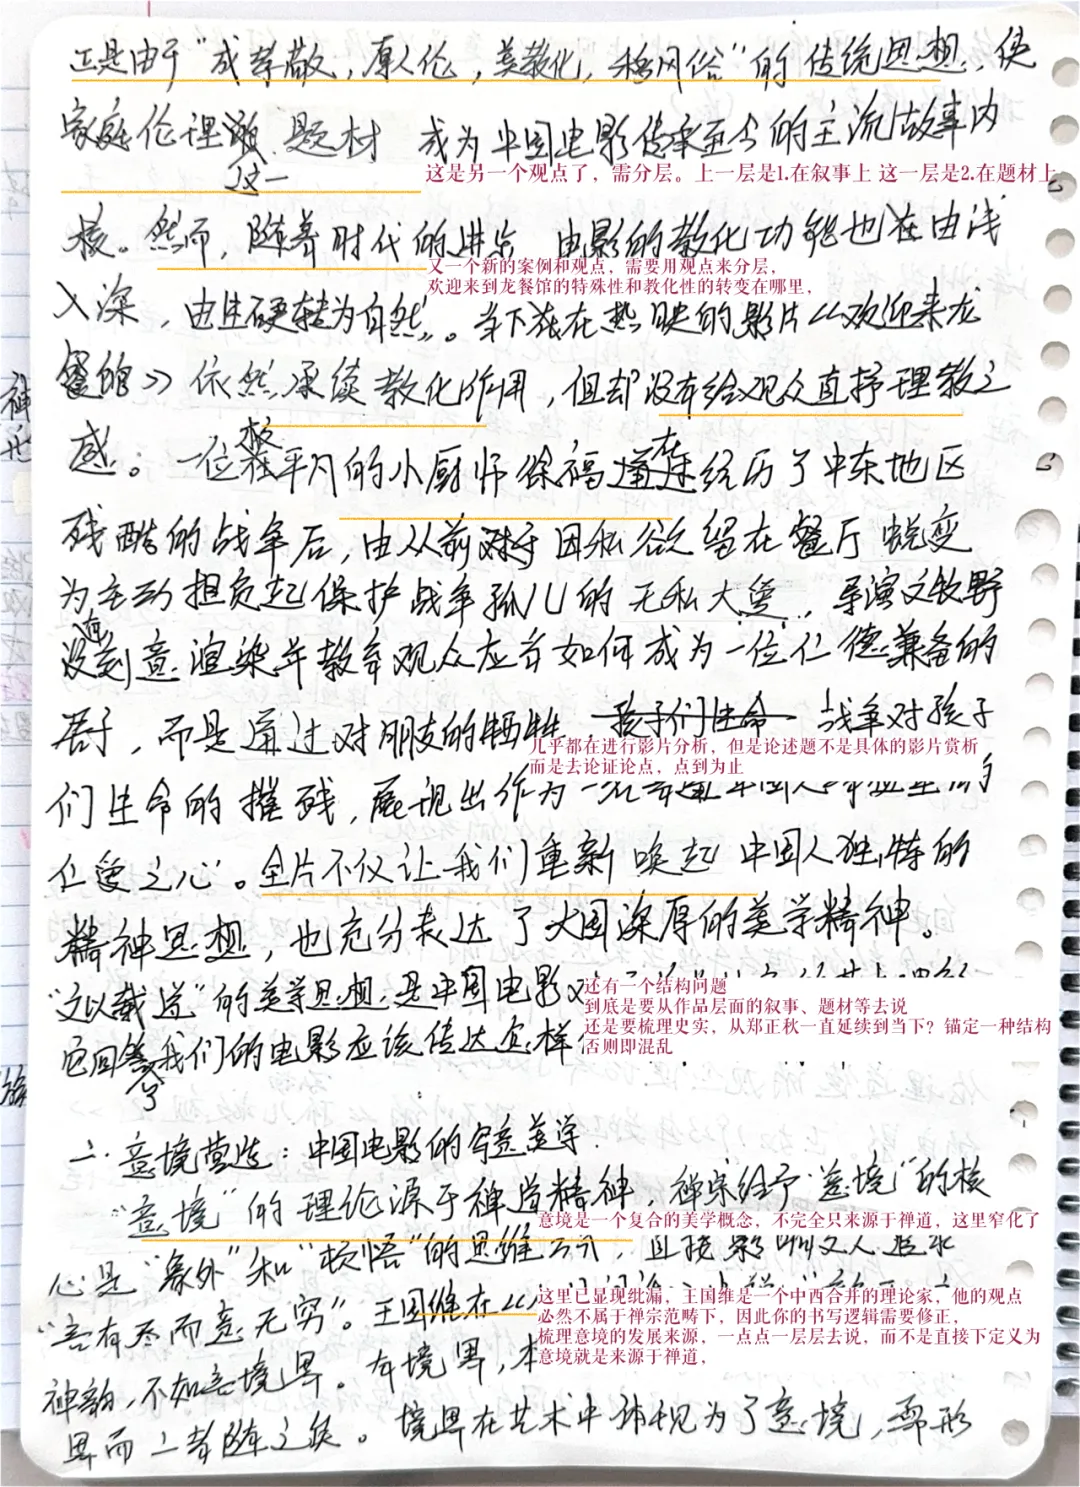 正是由于“成孝敬，厚人伦，美教化，移风俗”的传统思想，使
家庭伦理 题材 成为中国电影传承至今的主流故事内
这一
这是另一个观点了，需分层。上一层是1.在叙事上 这一层是2.在题材上
核。然而，随着时代的进步 电影的教化功能也在由浅
又一个新的案例和观点，需要用观点来分层，
欢迎来到龙餐馆的特殊性和教化性的转变在哪里，
入深，由生硬转为自然。当下正在热映的影片《欢迎来龙
餐馆》依然承续教化作用，但却没有给观众直抒理教之
感。一位本平凡的小厨师徐福 在经历了中东地区
残酷的战争后，由从前 因私欲留在餐厅 蜕变
为主动担负起保护战争孤儿的无私大 ，导演文牧野
没 刻意渲染并教育观众应当如何成为一位仁德兼备的
君子，而是通过对朋友的牺牲，孩子们生命 战争对孩子
几乎都在进行影片分析，但是论述题不是具体的影片赏析
而是去论证论点，点到为止
们生命的摧残，展现出作为一
仁爱之心。全片不仅让我们重新唤起中国人独特的
精神思想，也充分表达了大国深厚的美学精神。
还有一个结构问题
“文以载道”的美学思想是中国电影
到底是要从作品层面的叙事、题材等去说
还是要梳理史实，从郑正秋一直延续到当下？锚定一种结构
否则即混乱
它回答 我们的电影应该传达怎样
二. 意境营造：中国电影的写意美学.
“意境”的理论源于禅道精神，禅宗给予“意境”的核
意境是一个复合的美学概念，不完全只来源于禅道，这里窄化了
心是“象外”和“顿悟”的思维方式，直接影响文人追求
“言有尽而意无穷”。王国维在《
这里已显现纰漏，王国维是一个中西合并的理论家，他的观点
必然不属于禅宗范畴下，因此你的书写逻辑需要修正，
梳理意境的发展来源，一点点一层层去说，而不是直接下定义为
意境就是来源于禅道，
神韵，不如言境界。有境界，本
界而二者随之矣。境界在艺术中体现为了意境，而形